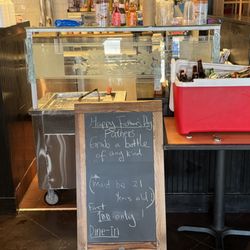 Happy Fathers Day
Partners
Grab a bottle
of any kind
(Must be 21
Years old)
First
100 only!
Dine-in